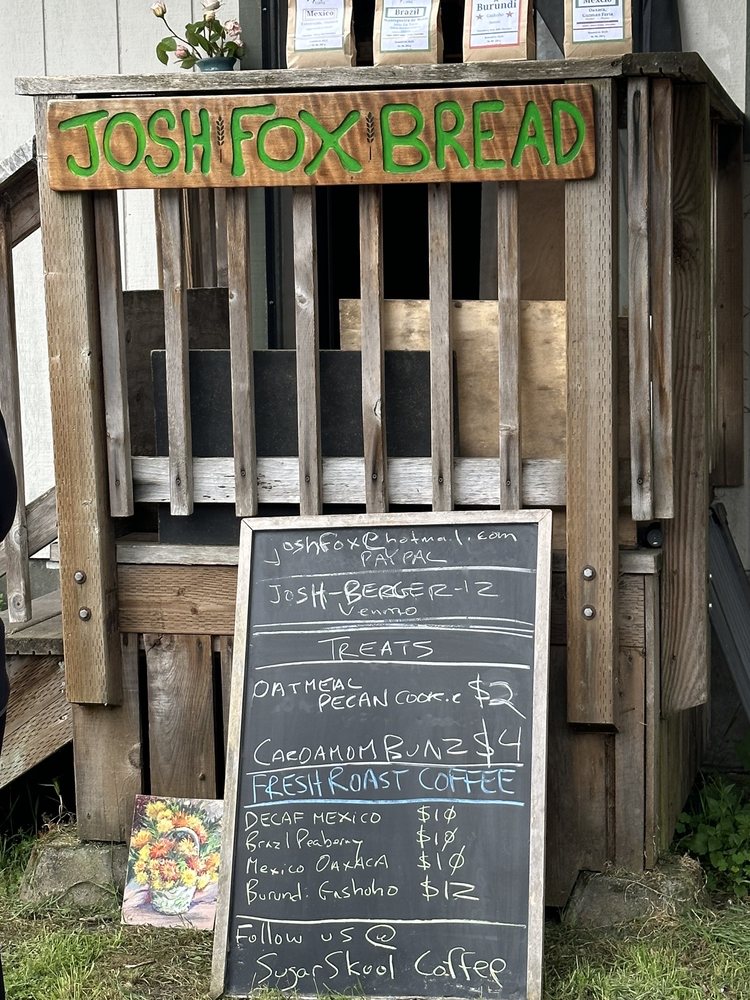 Mexico
Brazil
Burundi
Mexico
JOSH FOX BREAD
JoshFox@hotmail.com
PAYPAL
JOSH-BERGER-12
Venmo
TREATS
OATMEAL
PECAN COOKiE $2
CARDAMOM BUNZ $4
FRESH ROAST COFFEE
DECAF MEXICO $10
Brazil Peaberry $10
Mexico OAXACA $10
Burundi Gashoho $12
Follow us @
SugarSkool Coffee